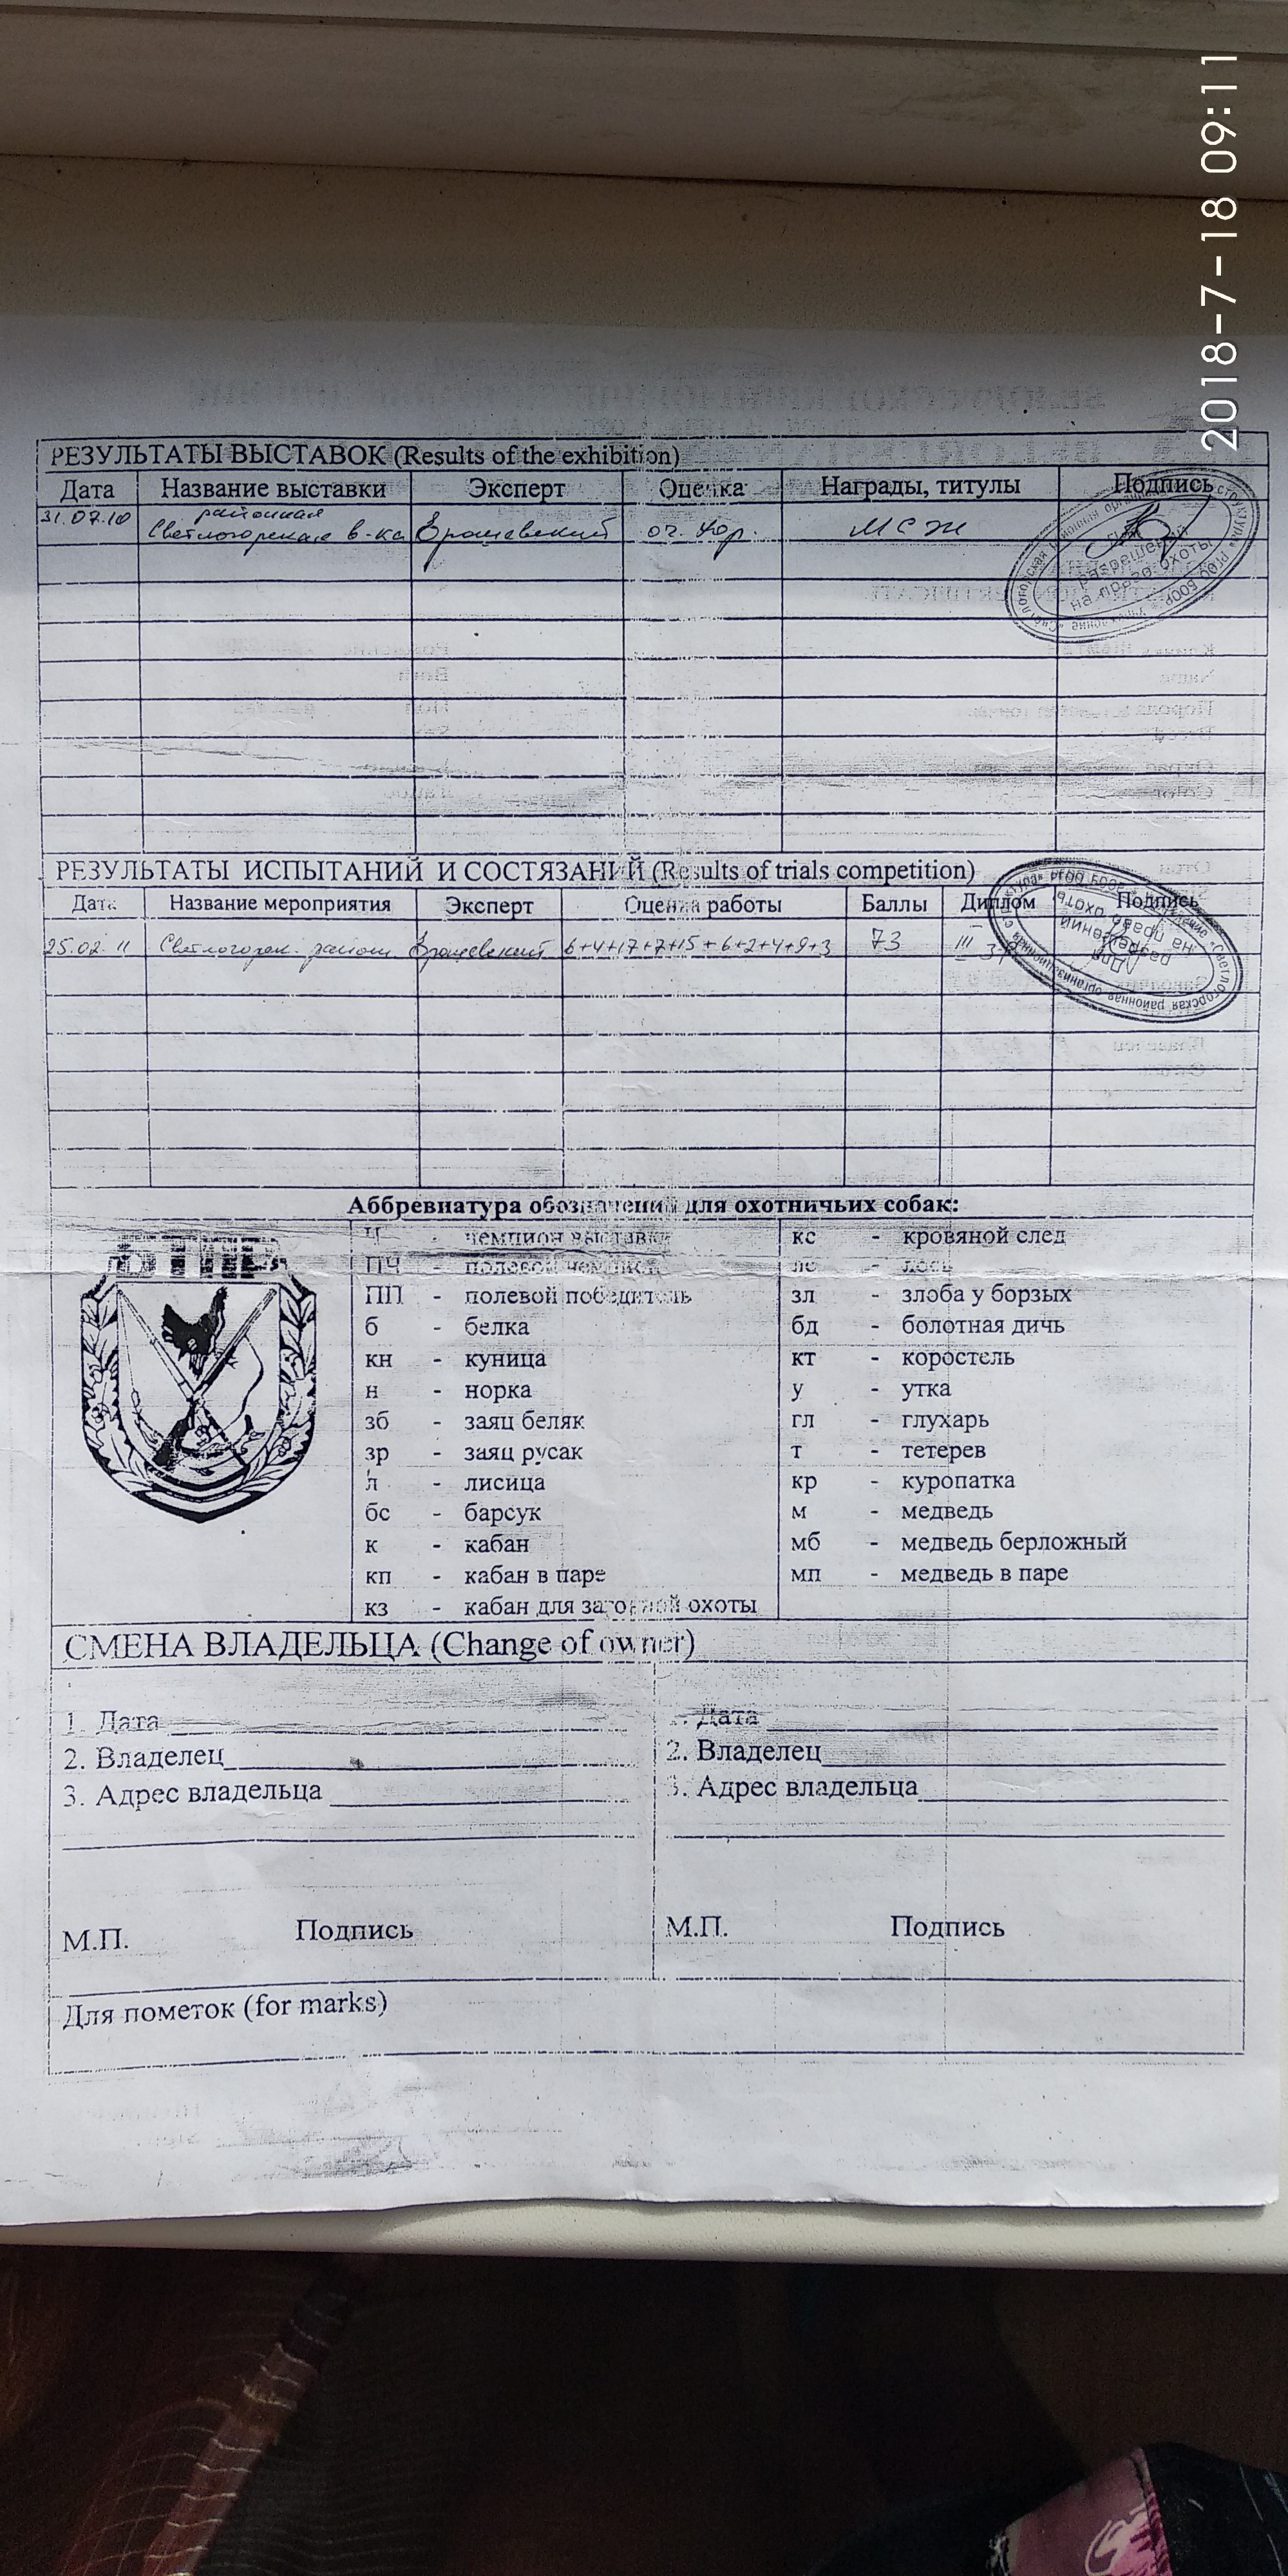 2018-7-18 09:11
РЕЗУЛЬТАТЫ ВЫСТАВОК (Results of the exhibition)
Дата Название выставки Эксперт Оценка Награды, титулы Подпись
31.07.10 районная Светлогорская в-ка оч. хор. МСЖ
Для разрешений на право охоты
РЕЗУЛЬТАТЫ ИСПЫТАНИЙ И СОСТЯЗАНИЙ (Results of trials competition)
Дата Название мероприятия Эксперт Оценка работы Баллы Диплом Подпись
25.02.11 6+4+17+7+15+6+2+4+9+3 73 III
Для разрешений на право охоты
Аббревиатура обозначений для охотничьих собак:
БТПР
Ч - чемпион выставки кс - кровяной след
ПЧ - полевой чемпион ло - лось
ПП - полевой победитель зл - злоба у борзых
б - белка бд - болотная дичь
кн - куница кт - коростель
н - норка у - утка
зб - заяц беляк гл - глухарь
зр - заяц русак т - тетерев
л - лисица кр - куропатка
бс - барсук м - медведь
к - кабан мб - медведь берложный
кп - кабан в паре мп - медведь в паре
кз - кабан для загонной охоты
СМЕНА ВЛАДЕЛЬЦА (Change of owner)
1. Дата 1. Дата
2. Владелец 2. Владелец
3. Адрес владельца 3. Адрес владельца
М.П. Подпись М.П. Подпись
Для пометок (for marks)